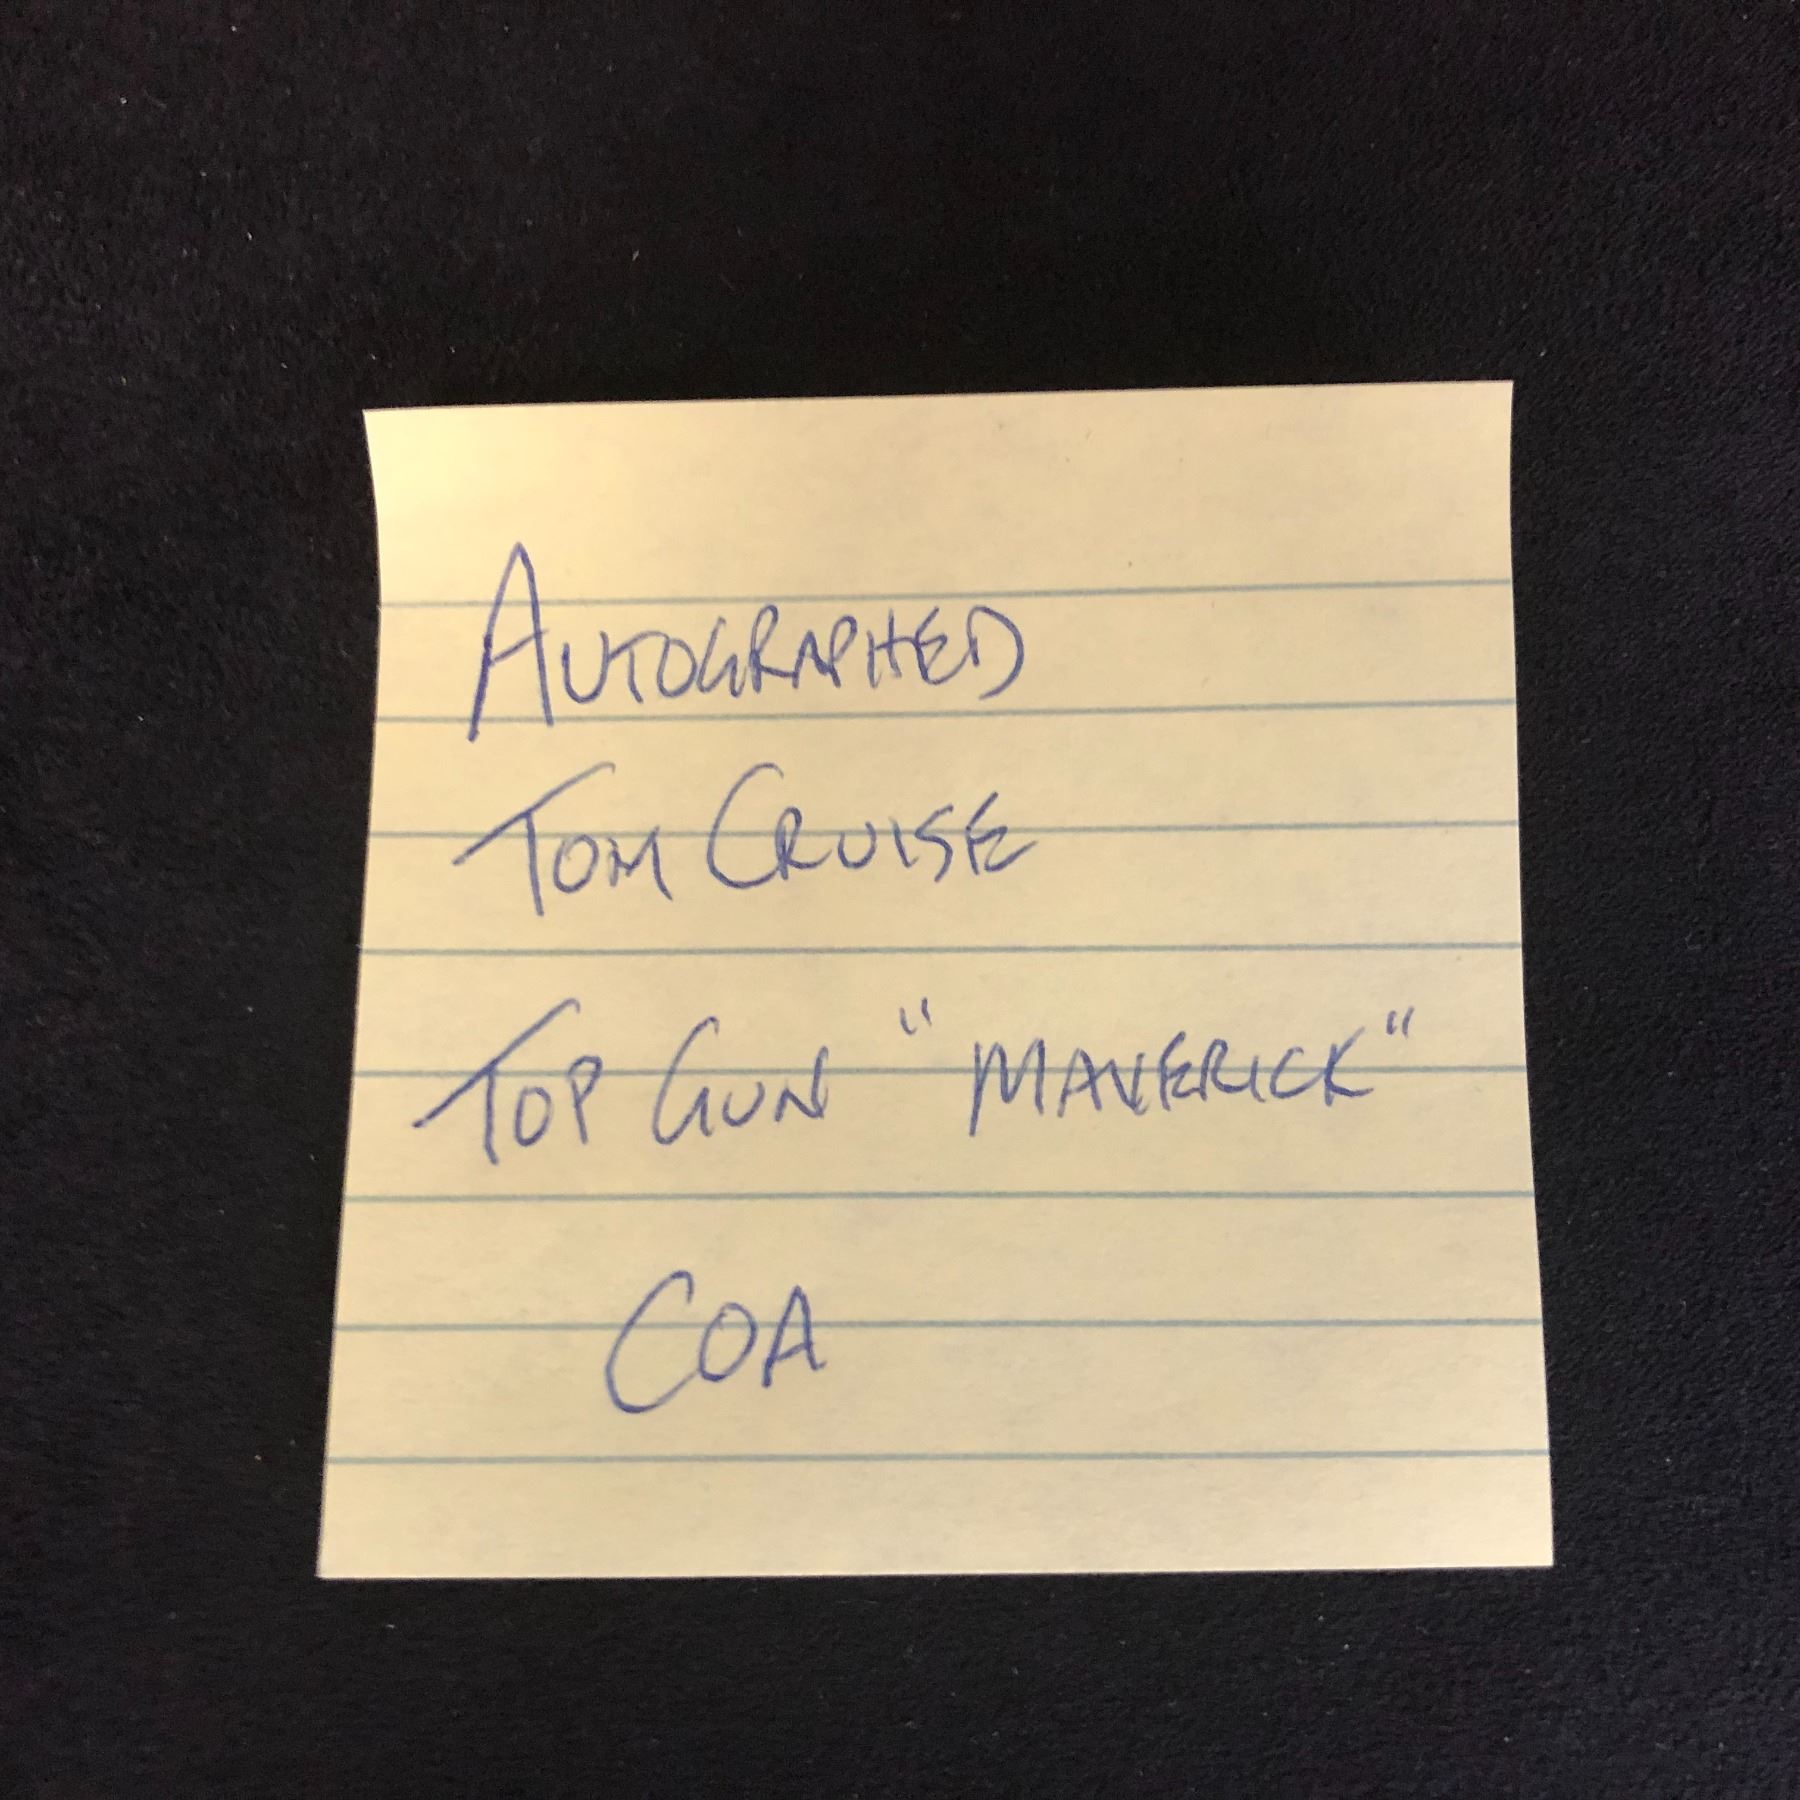 AUTOGRAPHED
TOM CRUISE
TOP GUN "MAVERICK"
COA